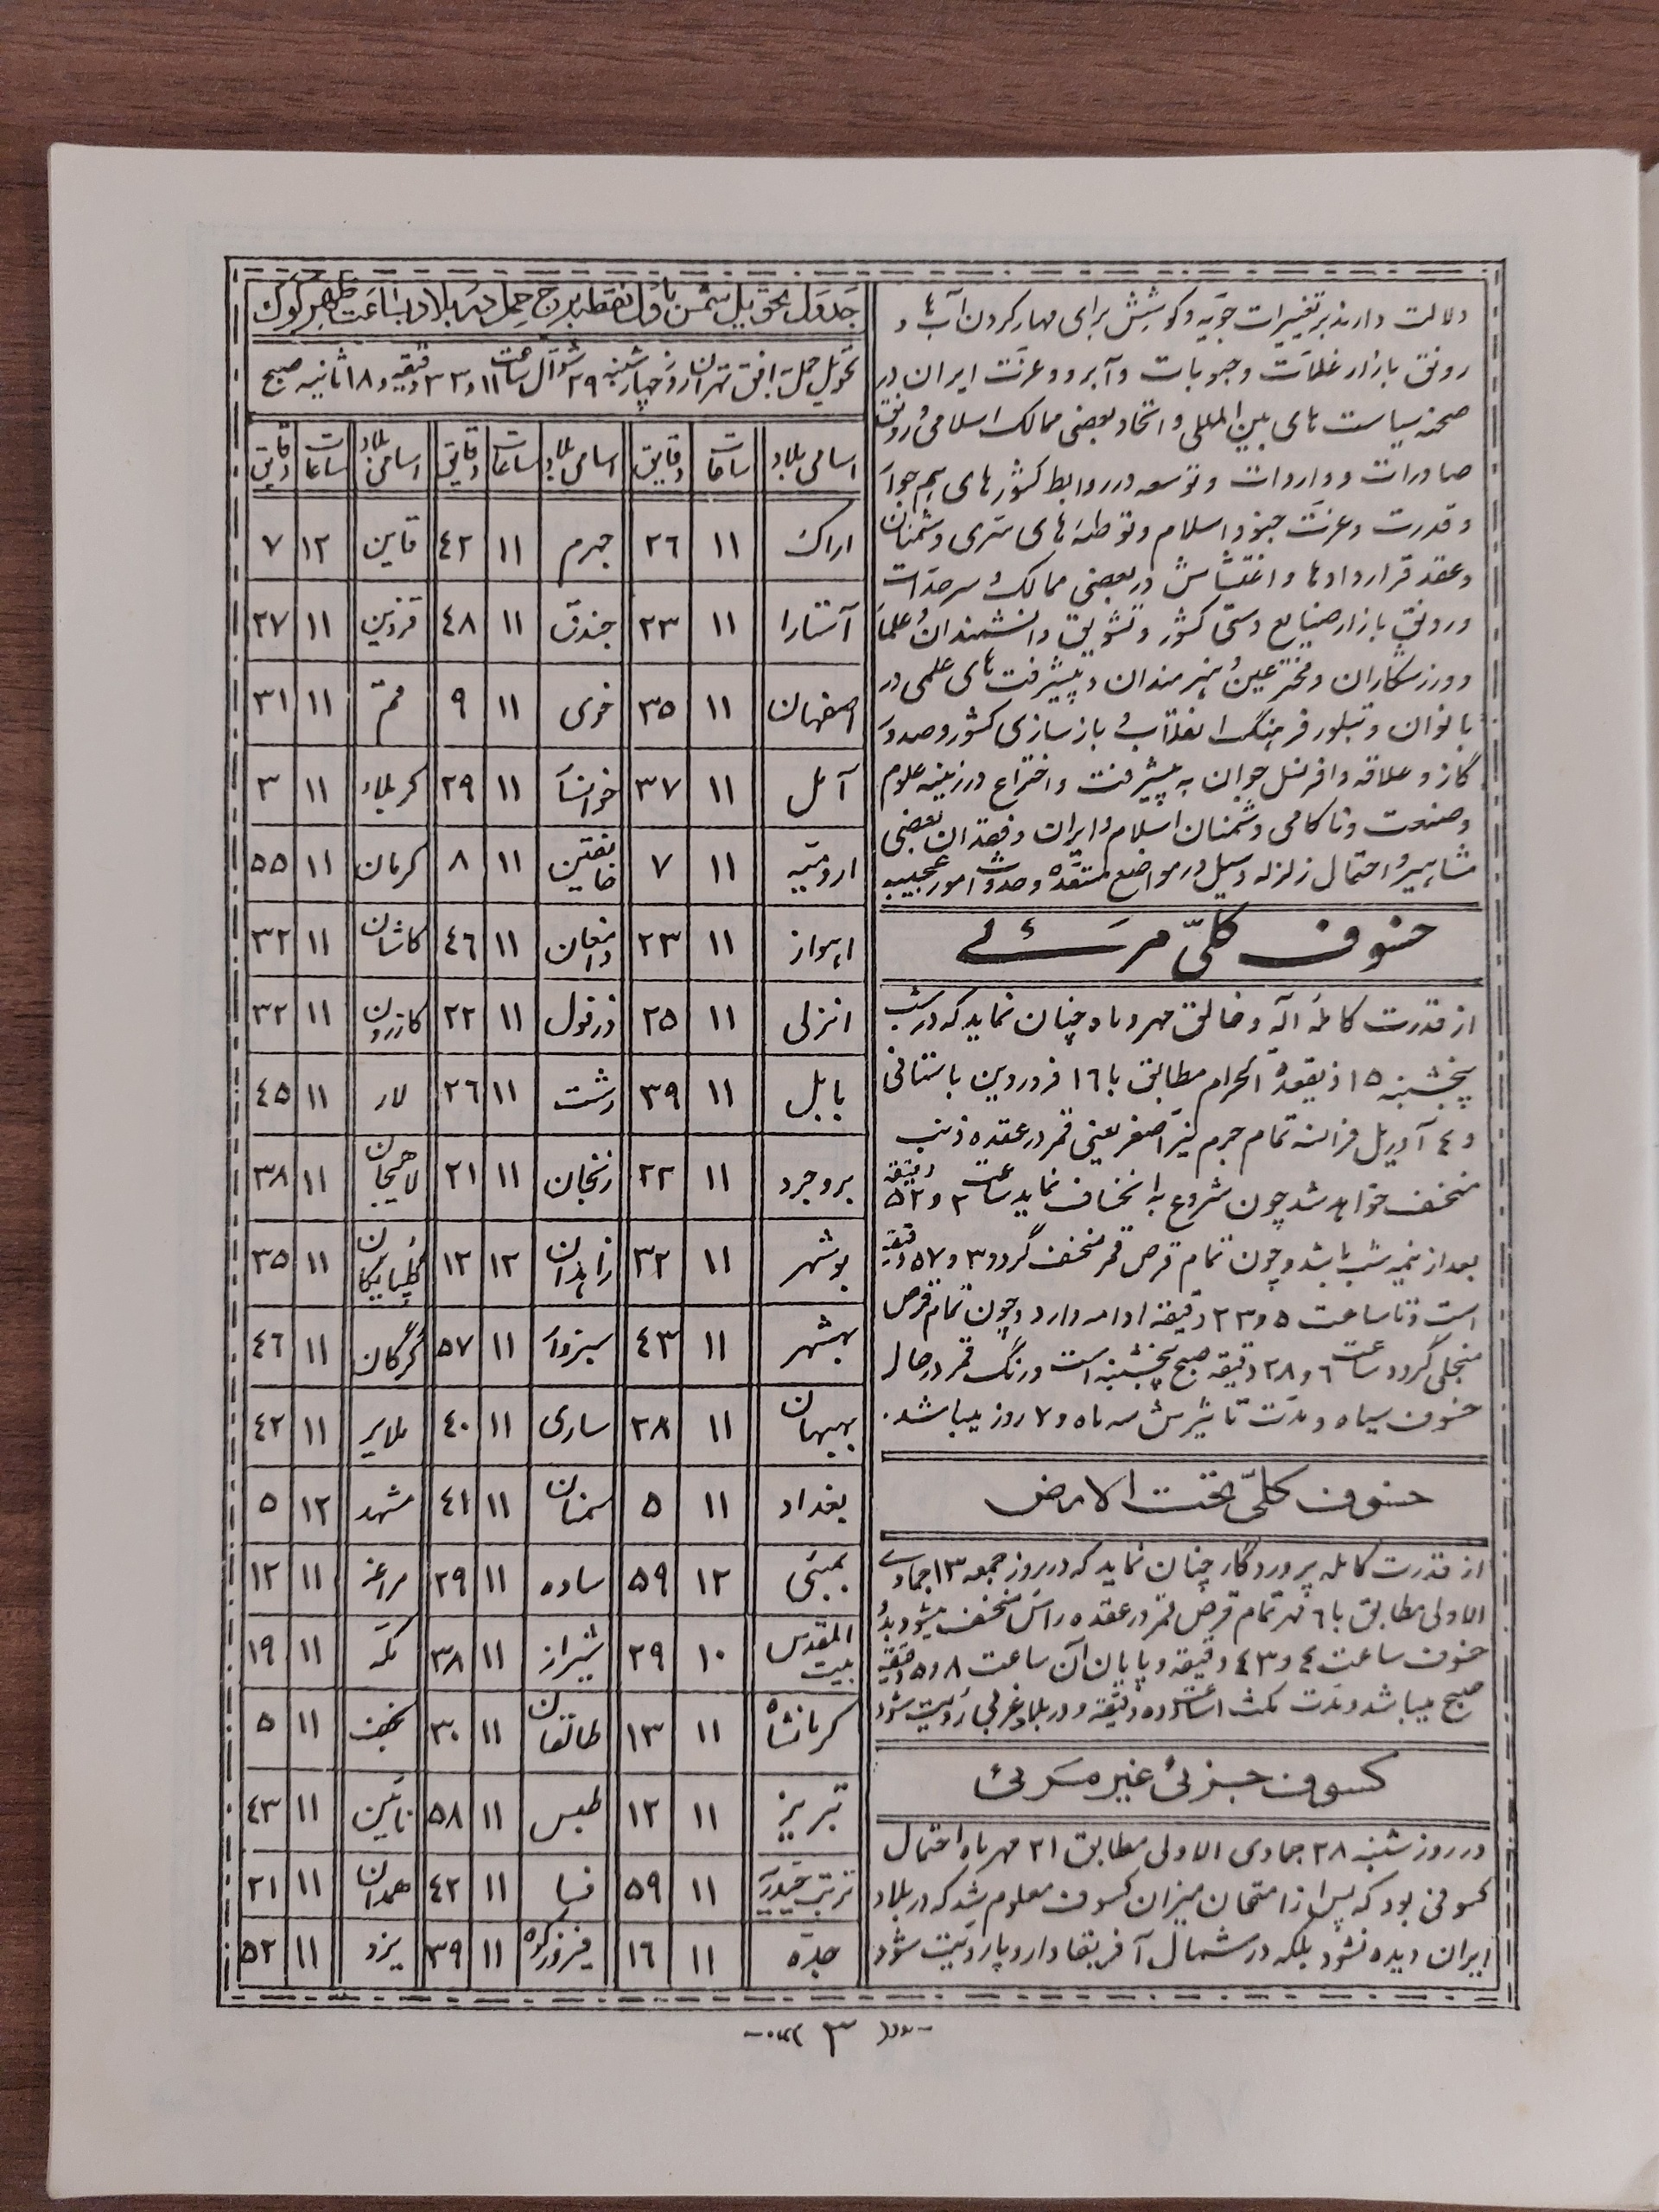 دلالت دارند بر تغییرات جویه و کوشش برای مهار کردن آب ها و
رونق بازار غلات و حبوبات و آبرو و عزت ایران در
صحنه سیاست های بین المللی و اتحاد بعضی ممالک اسلامی و رونق
صادرات و واردات و توسعه در روابط کشورهای هم جوار
و قدرت و عزت جنود اسلام و توطئه های سری دشمنان
و عقد قراردادها و اغتشاش در بعضی ممالک و سرحدات
و رونق بازار صنایع دستی کشور و تشویق دانشمندان و علماء
و ورزشکاران و مخترعین و هنرمندان و پیشرفت های علمی در
بانوان و تبلور فرهنگ انقلاب و بازسازی کشور و صدور
گاز و علاقه وافر نسل جوان به پیشرفت و اختراع در زمینه علوم
و صنعت و ناکامی دشمنان اسلام و ایران و فقدان بعضی
مشاهیر و احتمال زلزله و سیل در مواضع مستعده و حدوث امور عجیبه
خسوف کلی مرئی
از قدرت کامله اله و خالق مهر و ماه چنان نماید که در شب
پنجشنبه ۱۵ ذیقعدة الحرام مطابق با ۱۶ فروردین باستانی
و ٤ آوریل فرانسه تمام جرم نیّر اصغر یعنی قمر در عقده ذنب
منخسف خواهد شد چون شروع به انخساف نماید ساعت ۲ و ۵۲ دقیقه
بعد از نیمه شب باشد و چون تمام قرص قمر منخسف گردد ۳ و ۵۷ دقیقه
است و تا ساعت ۵ و ۲۳ دقیقه ادامه دارد و چون تمام قرص
منجلی گردد ساعت ۶ و ۲۸ دقیقه صبح پنجشنبه است و رنگ قمر در حال
خسوف سیاه و مدت تاثیرش سه ماه و ۷ روز میباشد.
خسوف کلی تحت الارض
از قدرت کامله پروردگار چنان نماید که در روز جمعه ۱۳ جمادی
الاولی مطابق با ٦ مهر تمام قرص قمر در عقده راس منخسف میشود بدو
خسوف ساعت ٤ و ٤۳ دقیقه و پایان آن ساعت ۸ و ۵ دقیقه
صبح میباشد و مدت مکث ۱ ساعت و ده دقیقه و در بلاد غربی رؤیت شود
کسوف جزئی غیر مرئی
در روز شنبه ۲۸ جمادی الاولی مطابق ۲۱ مهر ماه احتمال
کسوفی بود که پس از امتحان میزان کسوف معلوم شد که در بلاد
ایران دیده نشود بلکه در شمال آفریقا و اروپا رؤیت شود
جدول تحویل شمس باول نقطه برج حمل در بلاد بساعت ظهر کوک
تحویل حمل بافق تهران روز چهارشنبه ۲۹ شوال ساعت ۱۱ و ۳۳ دقیقه و ۱۸ ثانیه صبح
اسامی بلاد ساعات دقایق اسامی بلاد ساعات دقایق اسامی بلاد ساعات دقایق
اراک ۱۱ ۲٦ جهرم ۱۱ ٤۲ قاین ۱۲ ۷
آستارا ۱۱ ۲۳ جندق ۱۱ ٤۸ قزوین ۱۱ ۲۷
اصفهان ۱۱ ۳۵ خوی ۱۱ ۹ قم ۱۱ ۳۱
آمل ۱۱ ۳۷ خوانسار ۱۱ ۲۹ کربلاء ۱۱ ۳
ارومیه ۱۱ ۷ خانقین ۱۱ ۸ کرمان ۱۱ ۵۵
اهواز ۱۱ ۲۳ دامغان ۱۱ ٤٦ کاشان ۱۱ ۳۲
انزلی ۱۱ ۲۵ دزفول ۱۱ ۲۲ کازرون ۱۱ ۳۲
بابل ۱۱ ۳۹ رشت ۱۱ ۲٦ لار ۱۱ ٤۵
بروجرد ۱۱ ۲۲ زنجان ۱۱ ۲۱ لاهیجان ۱۱ ۳۸
بوشهر ۱۱ ۳۲ زاهدان ۱۲ ۱۲ گلپایگان ۱۱ ۳۵
بهشهر ۱۱ ٤۳ سبزوار ۱۱ ۵۷ گرگان ۱۱ ٤٦
بهبهان ۱۱ ۲۸ ساری ۱۱ ٤۰ ملایر ۱۱ ٤۲
بغداد ۱۱ ۵ سمنان ۱۱ ٤۱ مشهد ۱۲ ۵
بمبئی ۱۲ ۵۹ ساوه ۱۱ ۲۹ مراغه ۱۱ ۱۲
بیت المقدس ۱۰ ۲۹ شیراز ۱۱ ۳۸ مکه ۱۱ ۱۹
کرمانشاه ۱۱ ۱۳ طالقان ۱۱ ۳۰ نجف ۱۱ ۵
تبریز ۱۱ ۱۲ طبس ۱۱ ۵۸ نائین ۱۱ ٤۳
تربت حیدریه ۱۱ ۵۹ فسا ۱۱ ٤۲ همدان ۱۱ ۲۱
جده ۱۱ ۱٦ فیروزکوه ۱۱ ۳۹ یزد ۱۱ ۵۲
۳